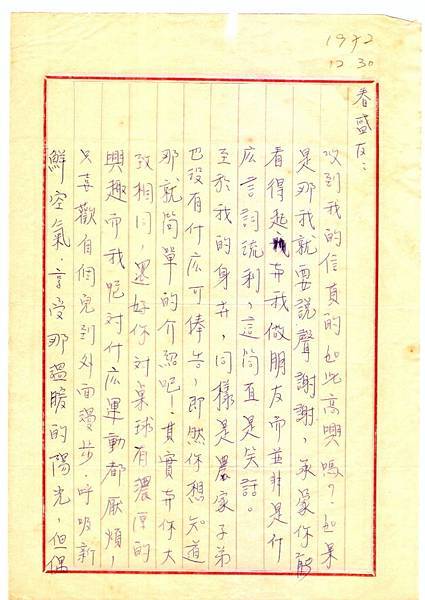 1972
12 30
春盛友：
收到我的信真的如此高興嗎？如果
是那我就要說聲謝謝，承蒙你能
看得起與我做朋友而並非是什
広言詞流利，這简直是笑話。
至於我的身世，同樣是農家子弟
也没有什広可俸告，即然你想知道
那就简單的介紹吧．其實與你大
致相同，還好你对桌球有濃厚的
興趣而我吧对什広運動都厭煩，
只喜歡自個兒到外面漫步．呼吸新
鮮空氣．享受那溫暖的陽光，但偶